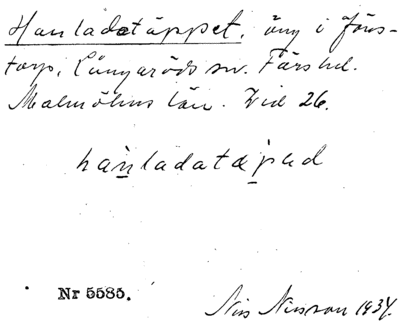 Hanladetäppet, äng i Jöns-
torp, Långaröds sn. Färs hd.
Malmöhus län. Vid 26.
hanladatäpəd
Nr 5585.
Nils Nilsson 1934.